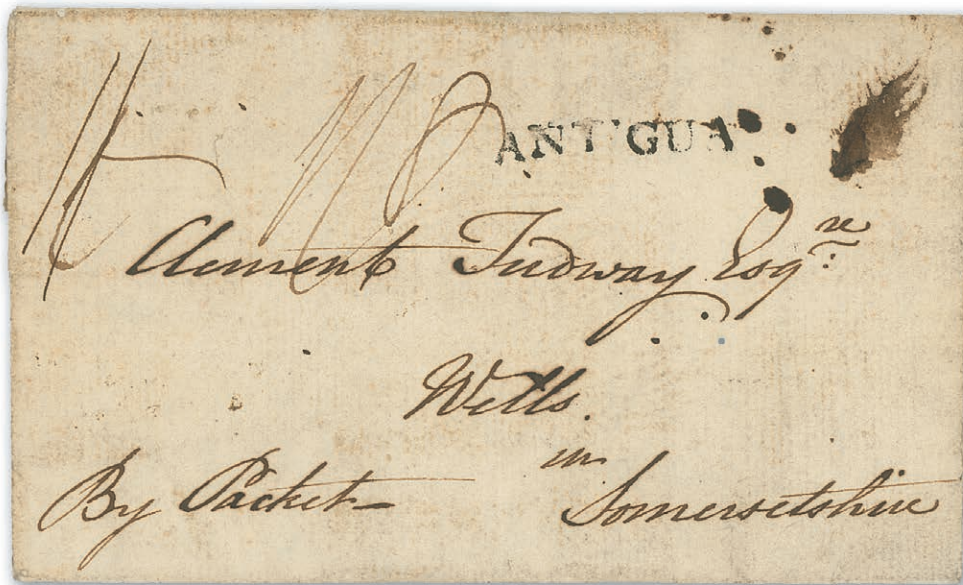 ANTIGUA
Clement Tudway Esqre
Wells.
in
By Packet - Somersetshire